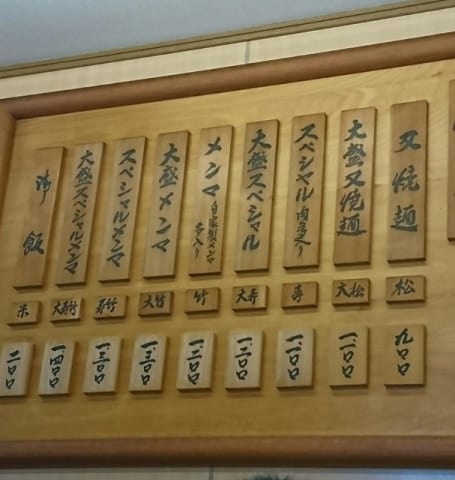 叉焼麺
松
九〇〇
大盛叉焼麺
大松
スペシャル肉多入り
寿
大盛スペシャル
大寿
メンマ 自家製メンマ多入り
竹
大盛メンマ
大竹
一、三〇〇
スペシャルメンマ
寿竹
一、三〇〇
大盛スペシャルメンマ
大寿竹
一、四〇〇
御飯
米
二〇〇